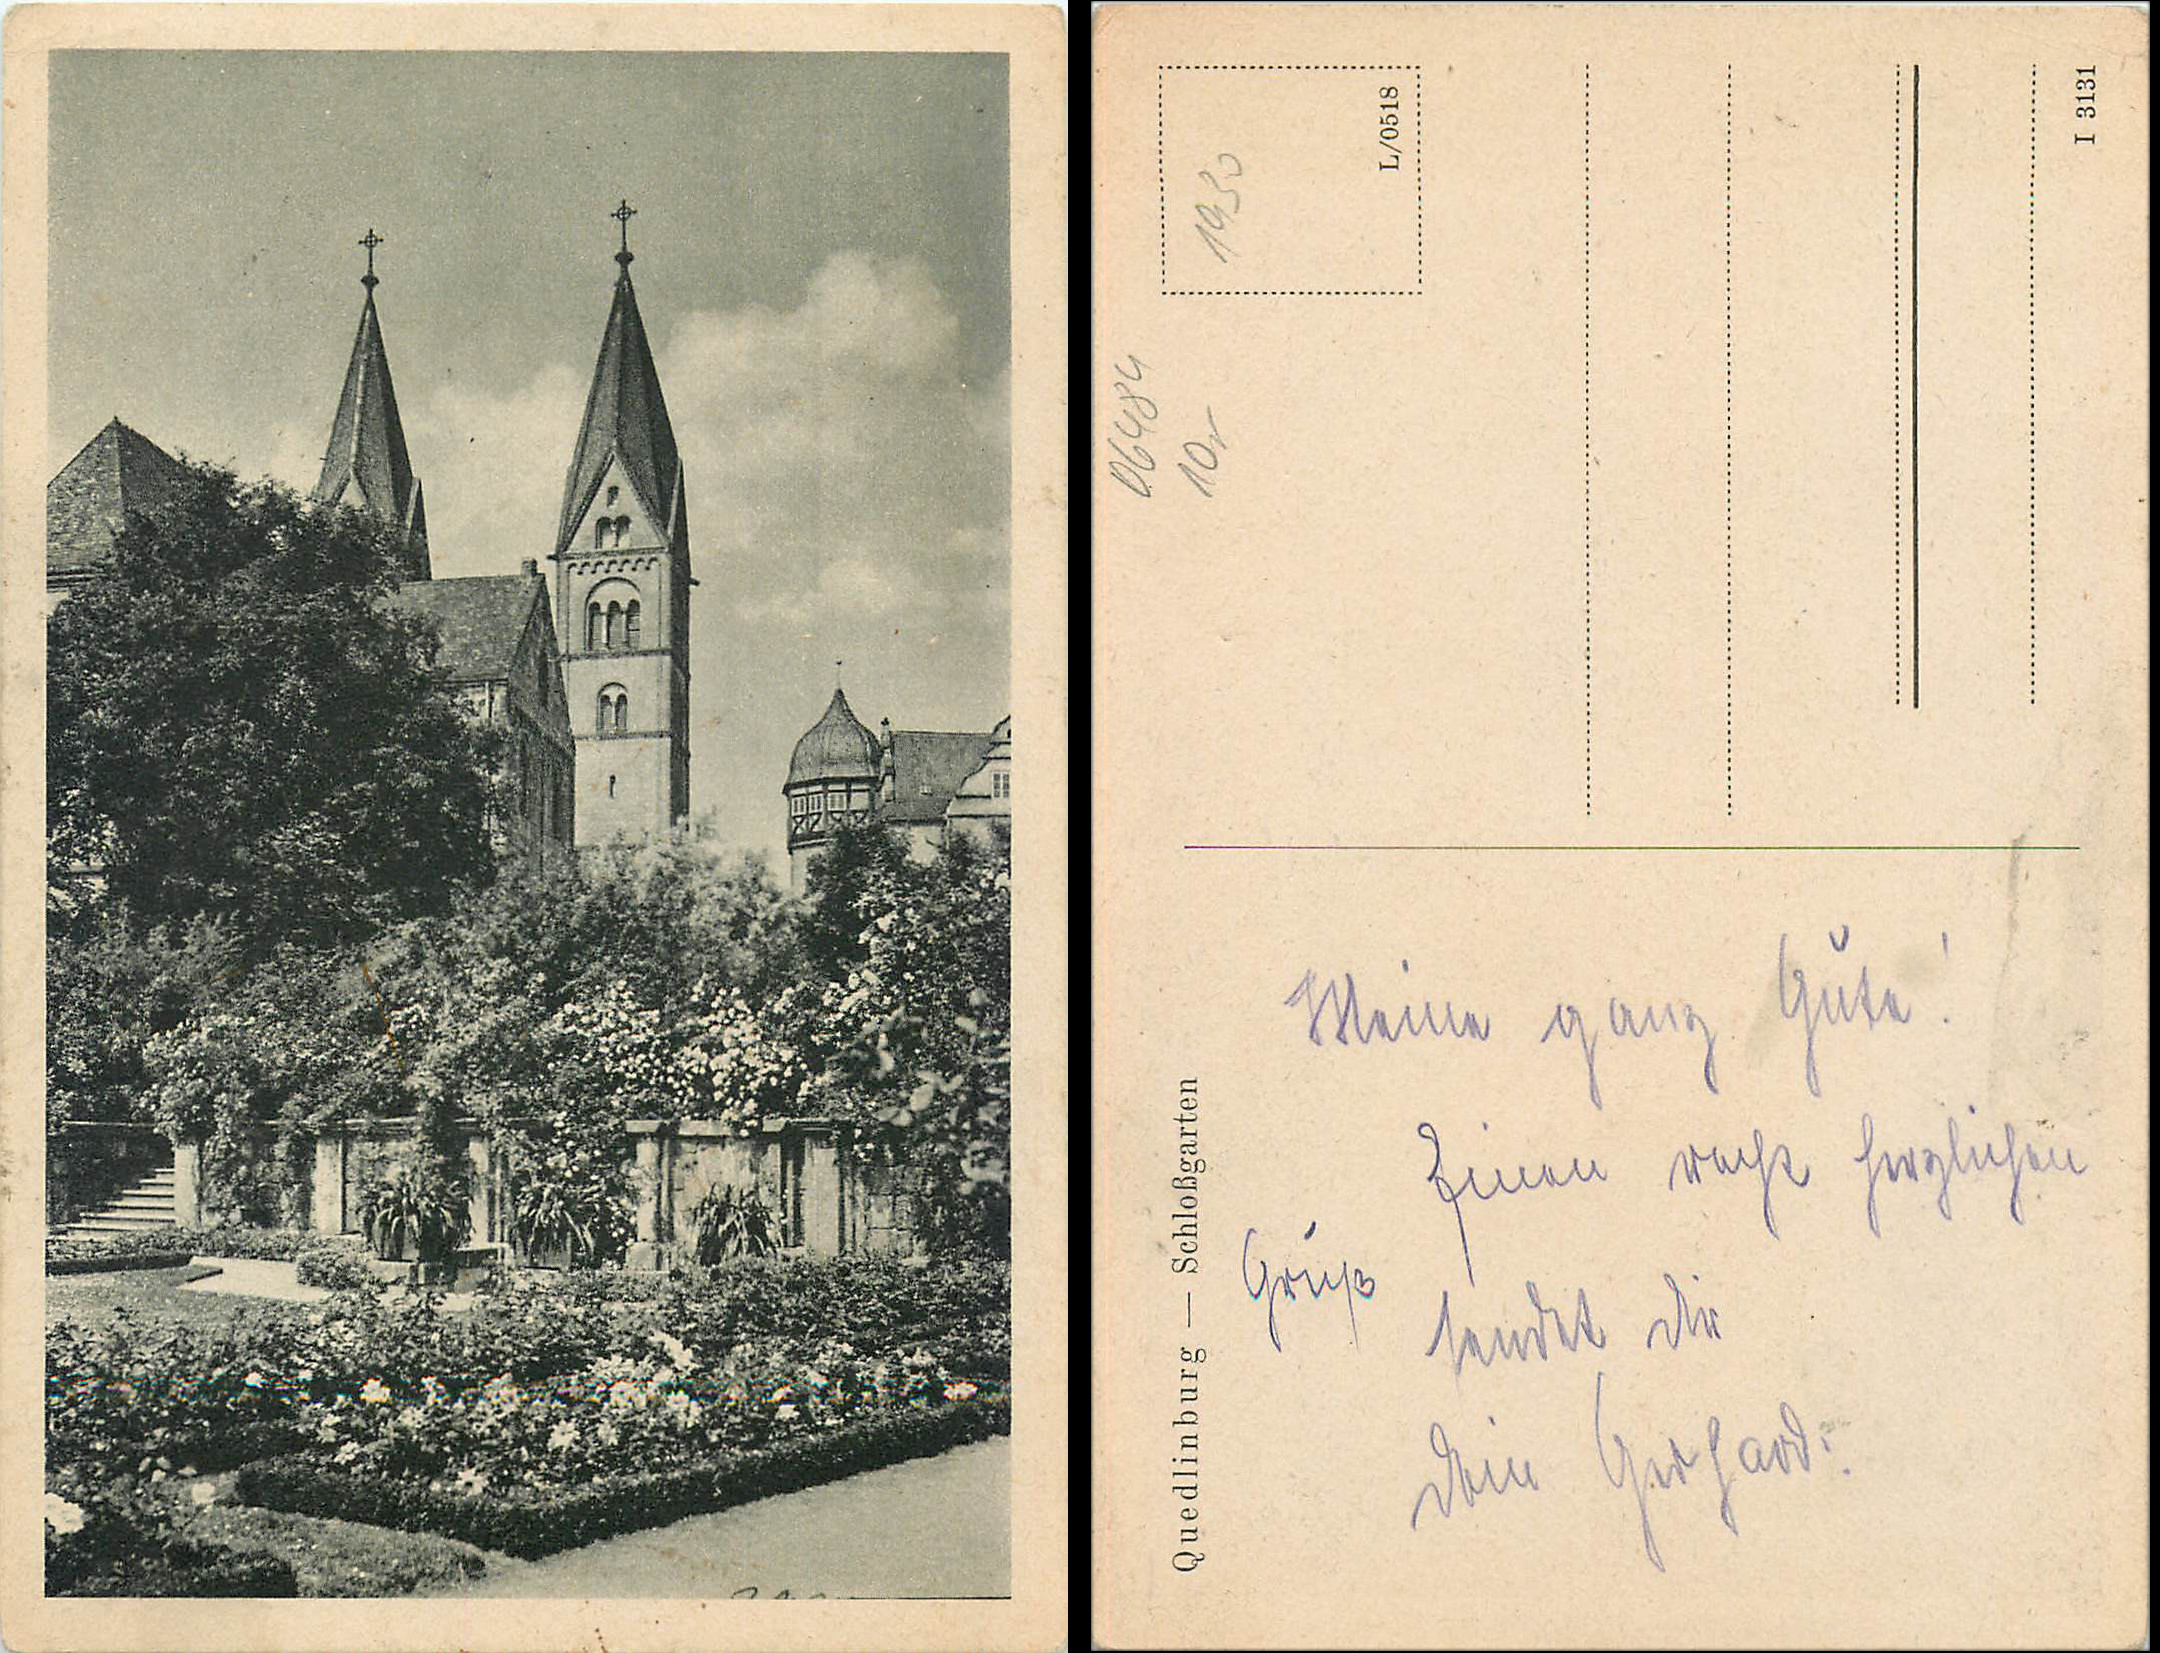 L/0518
1930
I 3131
06484
10,-
Quedlinburg — Schloßgarten
Meine ganz Gute!
Einen recht herzlichen
Gruß
sendet dir
Dein Gerhard.